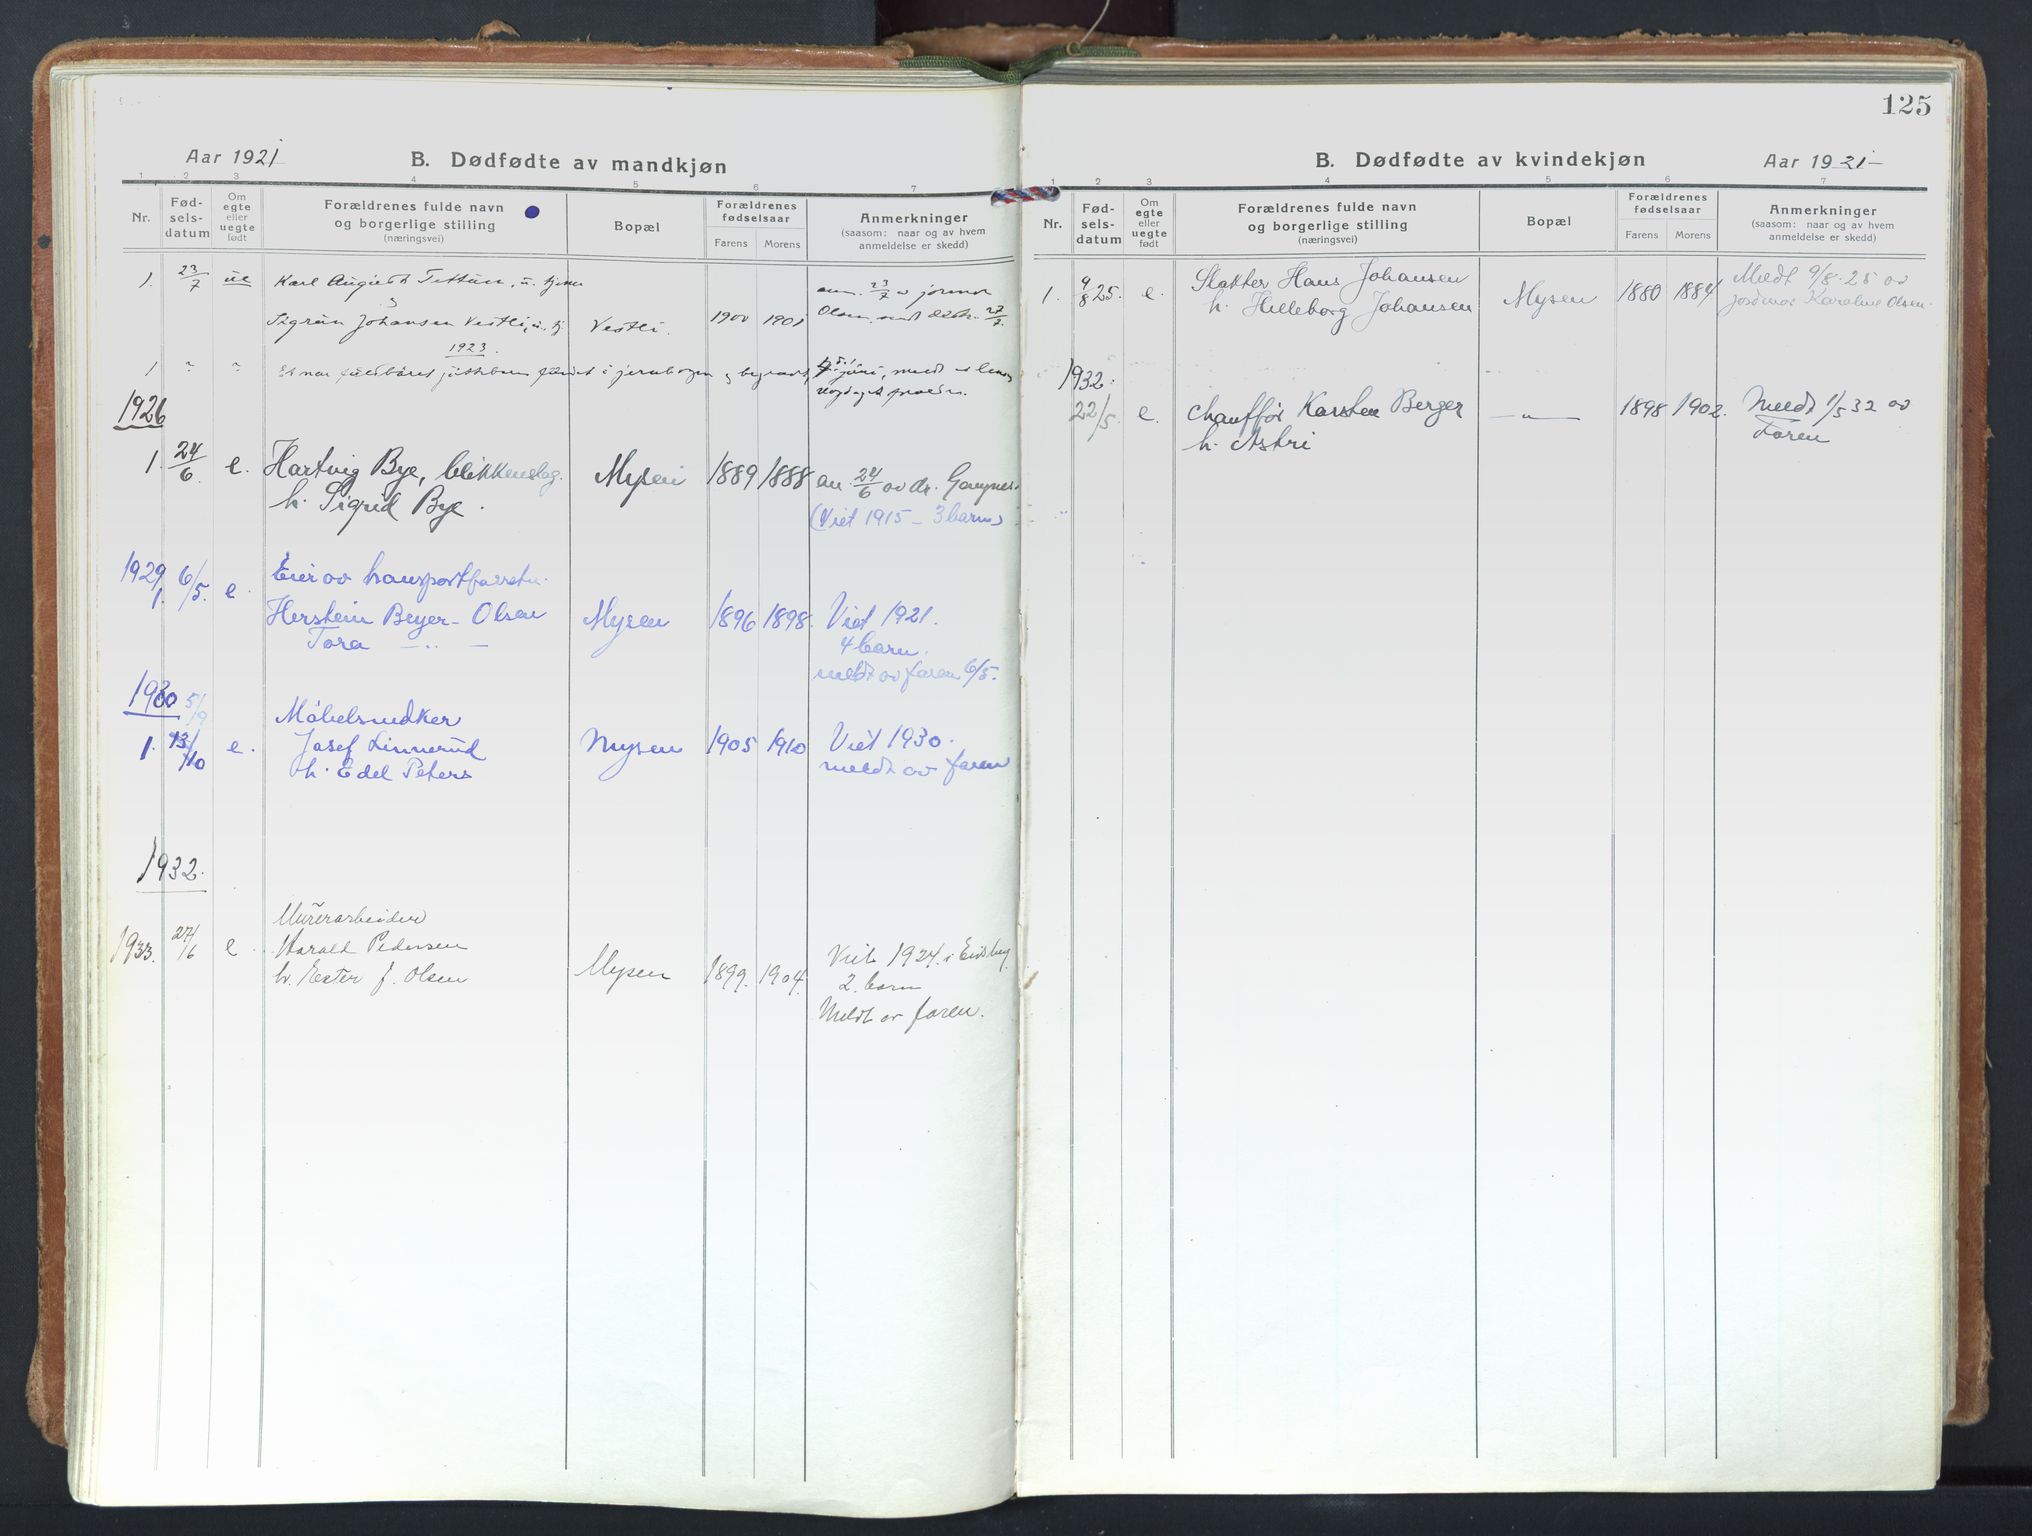 Aar 1921
B. Dødfødte av mandkjøn
1 2 3 4 5 6 7
Nr.
Fød-
sels-
datum
Om
egte
eller
uegte
født
Forældrenes fulde navn
og borgerlige stilling
(næringsvei)
Bopæl
Forældrenes
fødselsaar
Farens Morens
Anmerkninger
(saasom: naar og av hvem
anmeldelse er skedd)
1. 23/7 ue Karl August
Sigrun Johansen Vestli, Vestli. 1900 1901
Olsen
1923.
1 " "
1926
1. 24/6 e. Hartvig Bye, blikkenslag. Mysen 1889 1888 an. 24/6 av dr.
h. Sigrid Bye.
(Viet 1915 - 3 barn)
1929
1. 6/5. e. Eier av transportforretn.
Herstein Beyer-Olsen Mysen 1896 1898. Viet 1921.
Tora — .. — 4 barn.
meldt av faren 6/5.
1930 5/9
Møbelsnedker
1. 13/10 e. Josef Linnerud Mysen 1905 1910 Viet 1930.
h. Edel Peters meldt av faren
1932.
Murerarbeider
1933. 27/6 e. Harald Pedersen
h. Ester J. Olsen Mysen 1899. 1904. Viet 1924 i Eidsberg
2. barn
Meldt av faren.
125
B. Dødfødte av kvindekjøn
Aar 1921-
1 2 3 4 5 6 7
Nr.
Fød-
sels-
datum
Om
egte
eller
uegte
født
Forældrenes fulde navn
og borgerlige stilling
(næringsvei)
Bopæl
Forældrenes
fødselsaar
Farens Morens
Anmerkninger
(saasom: naar og av hvem
anmeldelse er skedd)
1. 9/8 25. e. Slakter Hans Johansen Mysen 1880 1884 Meldt 9/8-25 av
h. Helleborg Johansen jordmor Karoline Olsen.
1932.
22/5 e. Chauffør Karsten Berger — " — 1898 1902. Meldt 1/5 32 av
h. Astri Faren